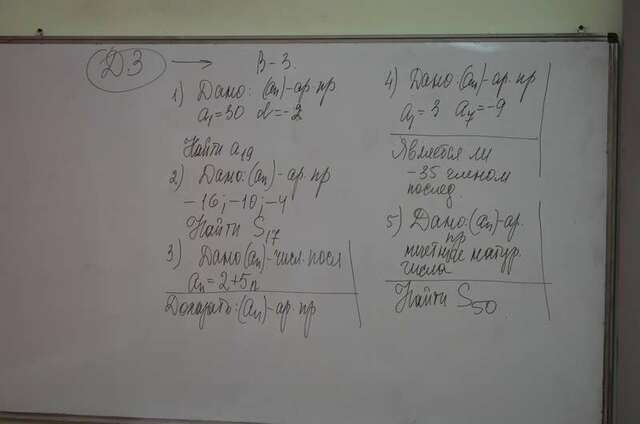 Д.З → В-3.
1) Дано: (aₙ)-ар. пр.
a₁=30 d=-2
Найти a₁₉
2) Дано: (aₙ)-ар. пр
-16; -10; -4
Найти S₁₇
3) Дано (aₙ)-числ. посл
aₙ=2+5n
Доказать: (aₙ)-ар. пр
4) Дано: (aₙ)-ар. пр
a₁=3 a₇=-9
Является ли
-35 членом
послед.
5) Дано: (aₙ)-ар.
пр
натур.
числа
Найти S₅₀